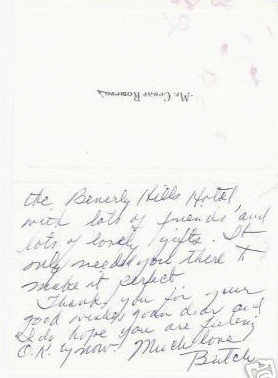 Mr. Cesar Romero
the Beverly Hills Hotel,
with lots of friends and
lots of lovely gifts. It
only needed you there to
make it perfect
Thank you for your
good wishes Joan dear and
I do hope you are feeling
O.K. by now. Much love
Butch